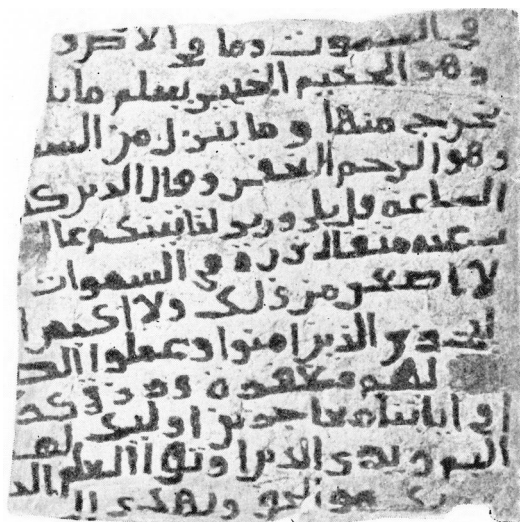 في السموت وما في الارض و
وهو الحكيم الخبير يعلم ما يلـ
يخرج منها وما ينزل من السـ
وهو الرحيم الغفور وقال الذين كـ
الساعة قل بلى وربي لتاتينكم عا
عنه مثقال ذرة في السموات
لا اصغر من ذلك ولا اكبر ا
ليجزي الذين امنوا وعملوا الصـ
لهم مغفرة ورزق كـ
في اياتنا معاجزين اولئك لهـ
اليم ويرى الذين اوتوا العلم الذ
ربك هو الحق ويهدي الى